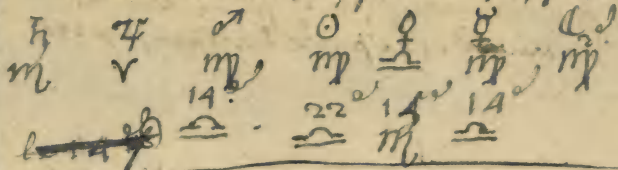 ♄ ♃ ♂ ☉ ♀ ☿ ☾
♏ ♈ ♍ ♍ ♎ ♍ ♍
14 22 14 14
♎ . ♎ ♏ ♎